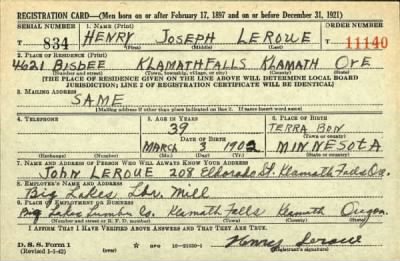 REGISTRATION CARD—(Men born on or after February 17, 1897 and on or before December 31, 1921)
SERIAL NUMBER 1. NAME (Print) ORDER NUMBER
T 834 HENRY JOSEPH LEROUE T 11140
(First) (Middle) (Last)
2. PLACE OF RESIDENCE (Print)
4621 BISBEE KLAMATH FALLS KLAMATH ORE
(Number and street) (Town, township, village, or city) (County) (State)
[THE PLACE OF RESIDENCE GIVEN ON THE LINE ABOVE WILL DETERMINE LOCAL BOARD
JURISDICTION; LINE 2 OF REGISTRATION CERTIFICATE WILL BE IDENTICAL]
3. MAILING ADDRESS
SAME
[Mailing address if other than place indicated on line 2. If same insert word same]
4. TELEPHONE 5. AGE IN YEARS 6. PLACE OF BIRTH
39 TERRA BON
DATE OF BIRTH (Town or county)
MARCH 3 1902 MINNESOTA
(Exchange) (Number) (Mo.) (Day) (Yr.) (State or country)
7. NAME AND ADDRESS OF PERSON WHO WILL ALWAYS KNOW YOUR ADDRESS
JOHN LEROUE 208 Eldorado St. Klamath Falls Ore.
8. EMPLOYER'S NAME AND ADDRESS
Big Lakes Lbr. Mill
9. PLACE OF EMPLOYMENT OR BUSINESS
Big Lakes Lumber Co. Klamath Falls Klamath Oregon
(Number and street or R. F. D. number) (Town) (County) (State)
I AFFIRM THAT I HAVE VERIFIED ABOVE ANSWERS AND THAT THEY ARE TRUE.
D. S. S. Form 1
(Revised 1-1-42) GPO 16-21630-1 Henry
(Registrant's signature)